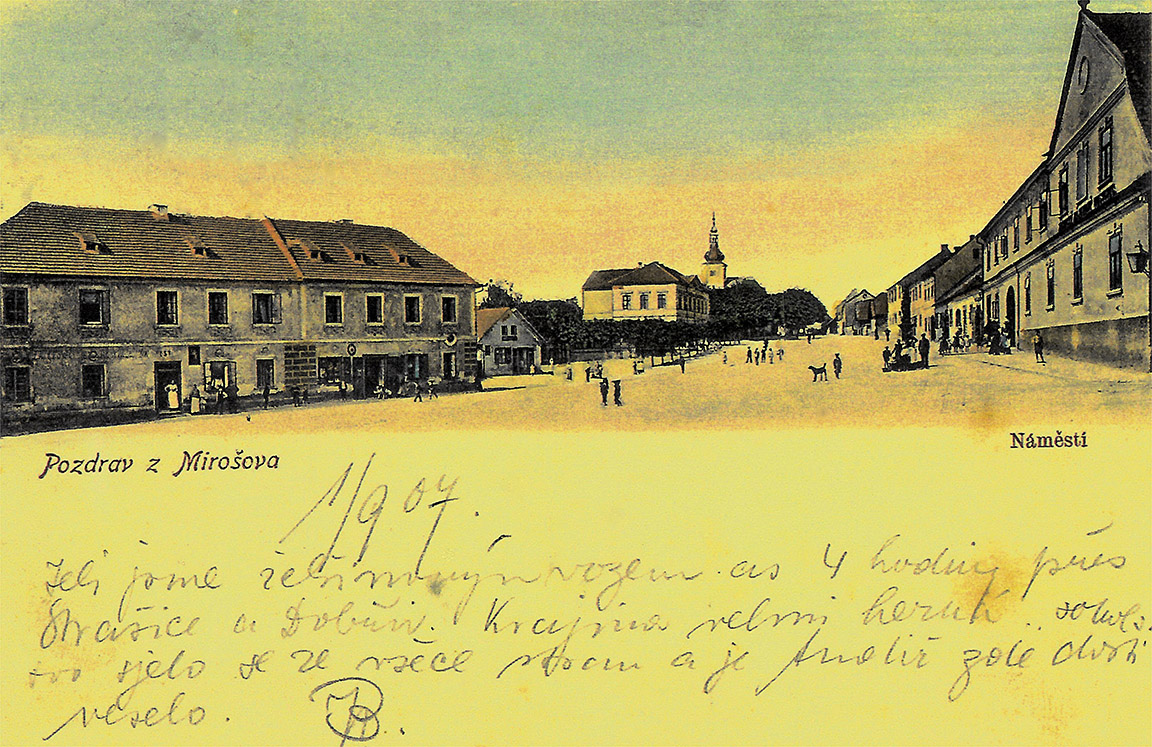 Náměstí
Pozdrav z Mirošova
1/9 07.
Jeli jsme žebřinovým vozem as 4 hodiny přes
Strašice a Dobřív. Krajina velmi hezká, sokols-
tvo sjelo se ze všech stran a je tudíž zde dosti
veselo.